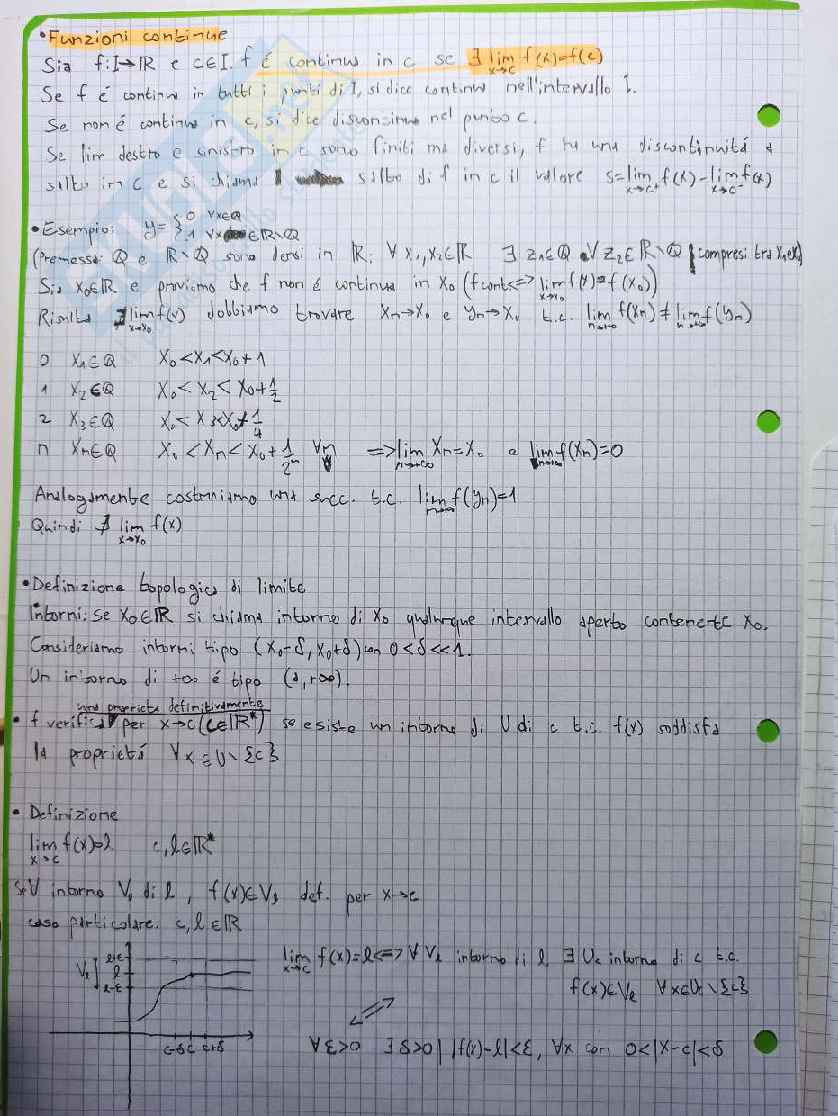 • Funzioni continue
Sia f:I→ℝ e c∈I. f é continua in c se ∃ lim x→c f(x)=f(c)
Se f é continua in tutti i punti di I, si dice continua nell'intervallo I.
Se non é continua in c, si dice discontinua nel punto c.
Se lim destro e sinistro in c sono finiti ma diversi, f ha una discontinuitá a
salto in c e si chiama salto di f in c il valore s=lim x→c⁺ f(x)-lim x→c⁻ f(x)
• Esempio: y= { 0 ∀x∈ℚ
1 ∀x ∈ℝ∖ℚ
(Premessa: ℚ e ℝ∖ℚ sono densi in ℝ: ∀ x₁,x₂∈ℝ ∃ z₁∈ℚ z₂∈ℝ∖ℚ compresi tra x₁ e x₂)
Sia x₀∈ℝ e proviamo che f non é continua in x₀ (f cont <=> lim x→x₀ f(x)=f(x₀))
Risulta ∄ lim x→x₀ f(x) dobbiamo trovare xn→x₀ e yn→x₀ t.c. lim n→∞ f(xn) ≠ lim n→∞ f(yn)
0 x₁∈ℚ x₀<x₁<x₀+1
1 x₂∈ℚ x₀<x₂<x₀+1/2
2 x₃∈ℚ x₀<x₃<x₀+1/4
n xn∈ℚ x₀<xn<x₀+1/2ⁿ ∀n => lim n→+∞ xn=x₀ e lim n→∞ f(xn)=0
Analogamente costruiamo una succ. t.c. lim n→∞ f(yn)=1
Quindi ∄ lim x→x₀ f(x)
• Definizione topologica di limite
Intorni: Se x₀∈ℝ si chiama intorno di x₀ qualunque intervallo aperto contenente x₀.
Consideriamo intorni tipo (x₀-δ, x₀+δ) con 0<δ<<1.
Un intorno di +∞ é tipo (a,+∞).
una proprietá definitivamente
• f verifica per x→c (c∈ℝ*) se esiste un intorno di U di c t.c. f(x) soddisfa
la proprietá ∀x∈U∖{c}
• Definizione
lim x→c f(x)=l c,l∈ℝ*
se ∀ intorno Vl di l, f(x)∈Vl def. per x→c
caso particolare: c,l∈ℝ
l+ε
Vl l
l-ε
c-δ c c+δ
lim x→c f(x)=l <=> ∀ Vl intorno di l, ∃ Uc intorno di c t.c.
f(x)∈Vl ∀x∈Uc∖{c}
∀ε>0 ∃δ>0 | |f(x)-l|<ε, ∀x con 0<|x-c|<δ